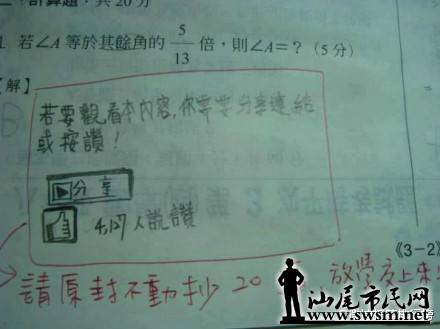 二、計算題：共20分
1. 若∠A等於其餘角的 5/13 倍，則∠A=？（5分）
【解】
若要觀看本內容，你要分享連結
或按讚！
▶分享
4,127人說讚
《3-2》
請原封不動抄 20
放學交上來
汕尾市民网
www.swsm.net